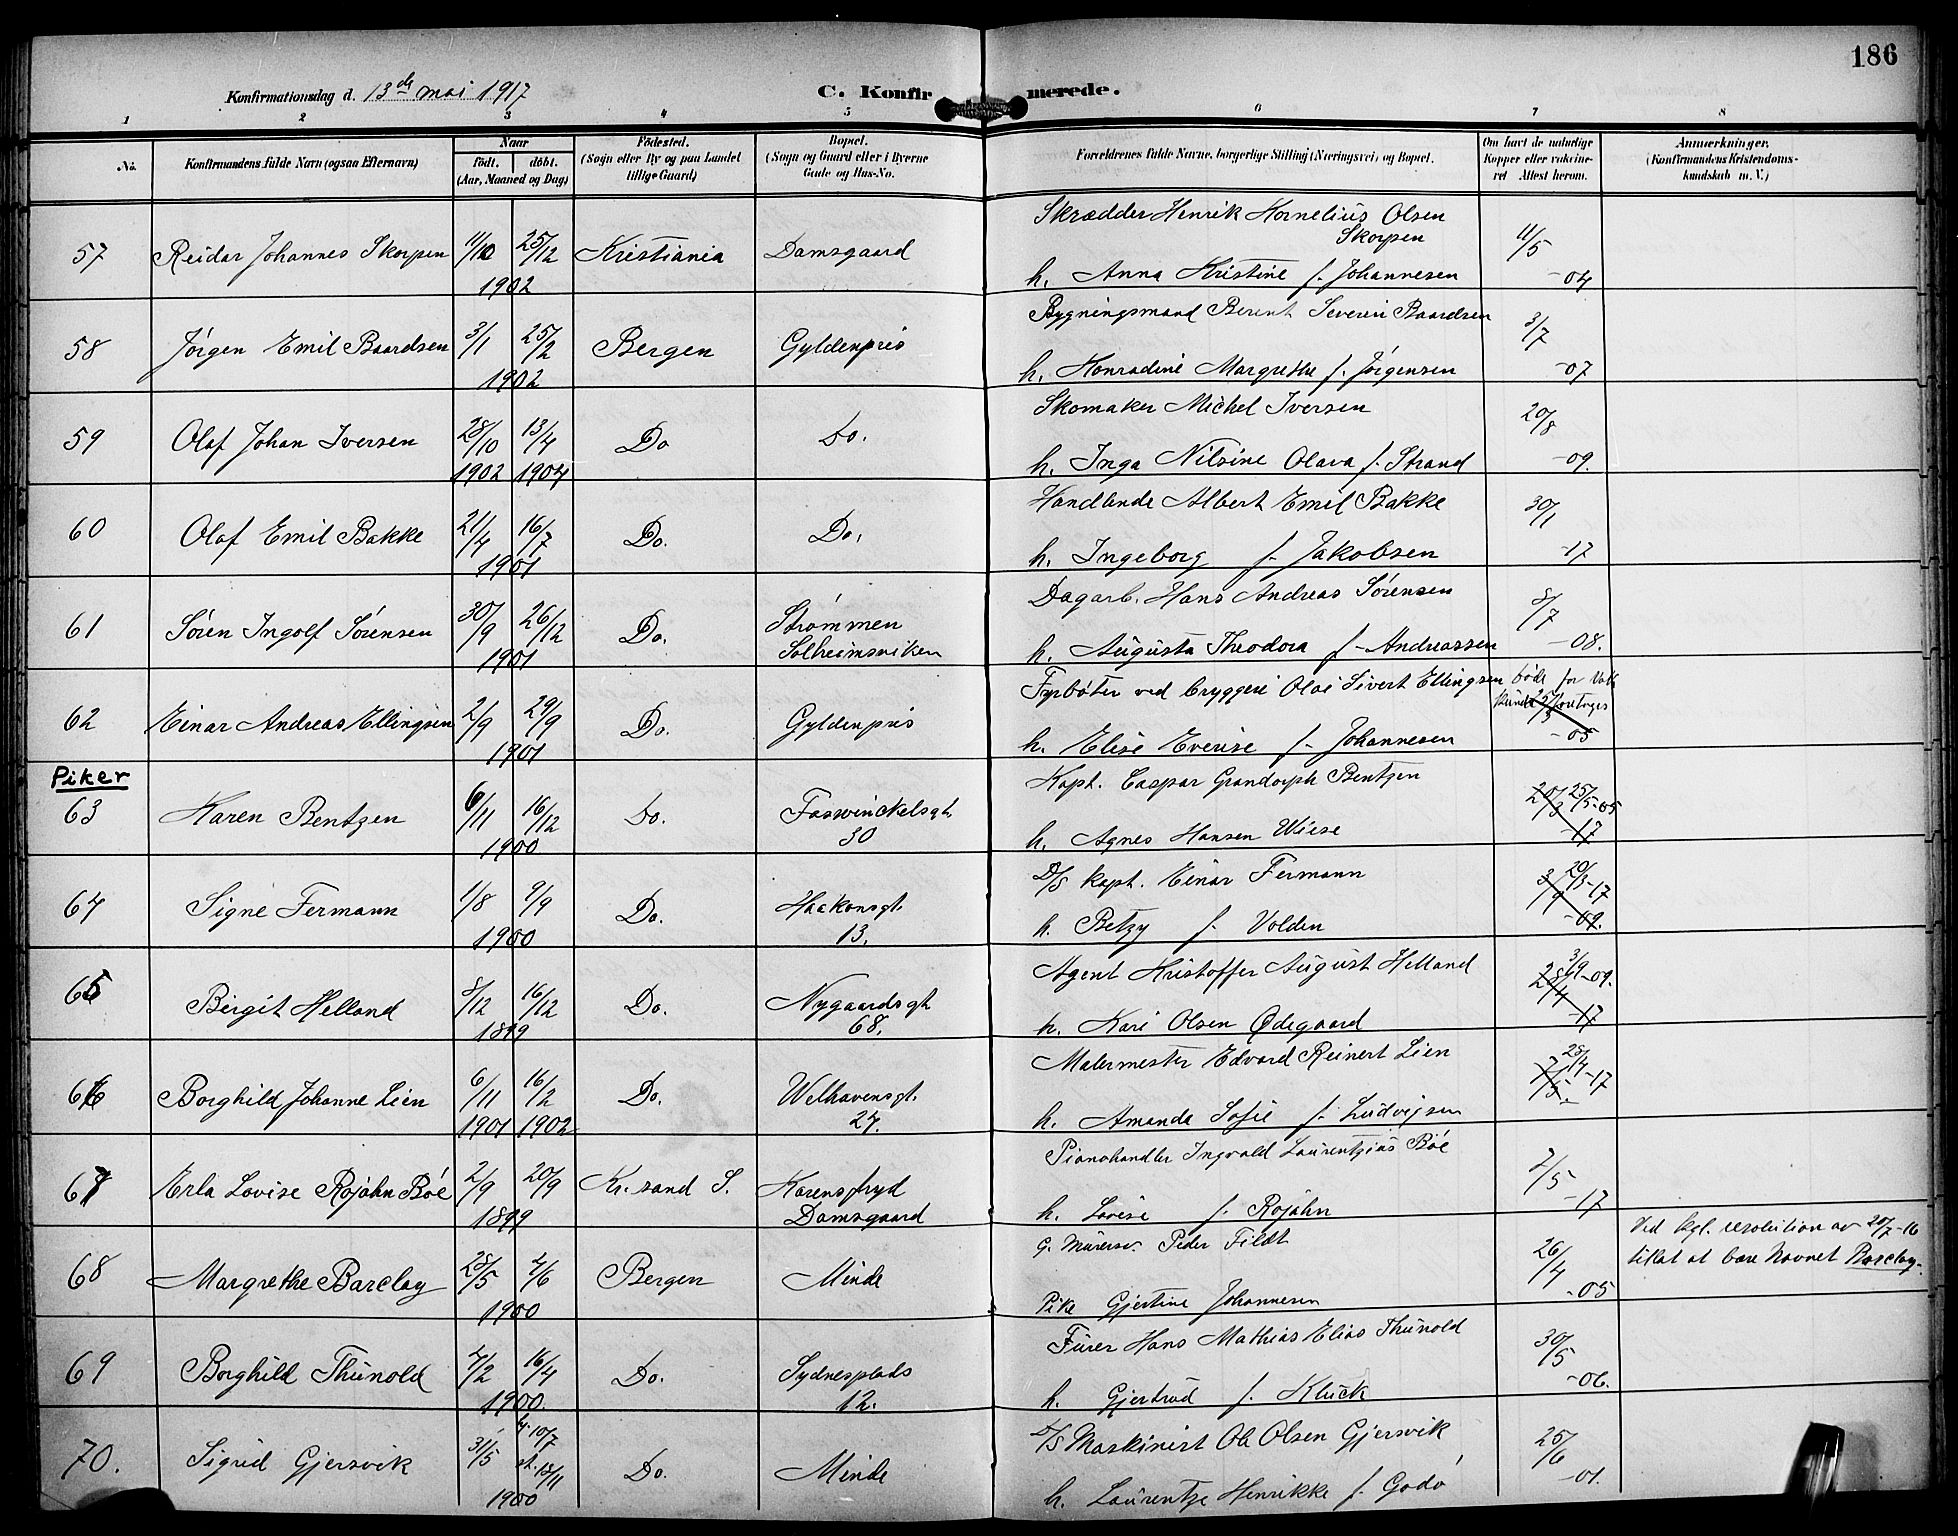 186
Konfirmationsdag d. 13de mai 1917
C. Konfirmerede.
1 2 3 4 5 6 7 8
No.
Konfirmandens fulde Navn (ogsaa Efternavn)
Naar
født. døbt.
(Aar, Maaned og Dag)
Fødested.
(Sogn eller By og paa Landet
tillige Gaard)
Bopæl.
(Sogn og Gaard eller i Byerne
Gade og Hus-No.
Forældrenes fulde Navne, borgerlige Stilling (Næringsvei) og Bopæl.
Om havt de naturlige
Kopper eller vaksine-
ret Attest herom.
Anmærkninger.
(Konfirmandens Kristendoms-
kundskab m. V.)
57 Reidar Johannes Skorpen 11/10 25/12 Kristiania Damsgaard Skrædder Henrik Kornelius Olsen
Skorpen 11/5
1902 h. Anna Kristine f. Johannesen -04
58 Jørgen Emil Baardsen 3/1 25/2 Bergen Gyldenpris Bygningsmand Berent Severin Baardsen 3/7
1902 h. Konradine Margrethe f. Jørgensen -07
59 Olaf Johan Iversen 28/10 13/4 Do Do. Skomaker Michel Iversen 20/8
1902 1904 h. Inga Nilsine Olava f. Strand -09.
60 Olaf Emil Bakke 21/4 16/7 Do. Do. Handlende Albert Emil Bakke 30/1
1901 h. Ingeborg f. Jakobsen -17
61 Søren Ingolf Sørensen 30/9 26/12 Do. Strømmen
Solheimsviken Dagarb. Hans Andreas Sørensen 8/7
1901 h. Augusta Theodora f. Andreassen -08.
62 Einar Andreas Ellingsen 2/9 29/9 Do. Gyldenpris Fyrbøter ved bryggeri Olai Sivert Ellingsen bøde for
1901 h. Elise Everise f. Johannesen -05
Piker
63 Karen Bentzen 6/11 16/12 Do. Fosswinckelsgt.
30 Kapt. Caspar Grandorph Bentzen 20/3 25/5-05
1900 h. Agnes Hansen Wiese -17
64 Signe Fermann 1/8 9/9 Do. Haakonsgt.
13. D/S kapt. Einar Fermann 3/9 20/3-17
1900 h. Betzy f. Volden -09.
65 Bergit Helland 8/12 16/12 Do. Nygaardsgt.
68. Agent Kristoffer August Helland 28/4 3/9-09.
1899 h. Kari Olsen Ødegaard -17
66 Borghild Johanne Lien 6/11 16/2 Do. Welhavensgt.
27. Malermester Edvard Reinert Lien 2/5. 28/4-17
1901 1902 h. Amanda Sofie f. Ludvigsen
67 Erla Lovise Rojahn Bøe 2/9 20/9 Kr. sand S. Karensfryd
Damsgaard Pianohandler Ingvald Laurentzius Bøe 2/5
1899 h. Lovise f. Rojahn -17
68 Margrethe Barclay 28/5 4/6 Bergen Minde G. Murersv. Peder Fildt 26/4 Ved kgl. resolution av 20/7-16
tillat at bære Navnet Barclay.
1900 Pike Gjertine Johannesen -05
69 Borghild Thunold 4/2 16/4 Do. Sydnesplads
12. Furer Hans Mathias Elias Thunold 30/5
1900. h. Gjertrud f. Kluck -06.
70. Sigrid Gjersvik 31/5 hj. 10/7
st. 18/11 Do. Minde D/S Maskinist Ole Olsen Gjersvik 25/6
1900 h. Laurentze Henrikke f. Godø -01.